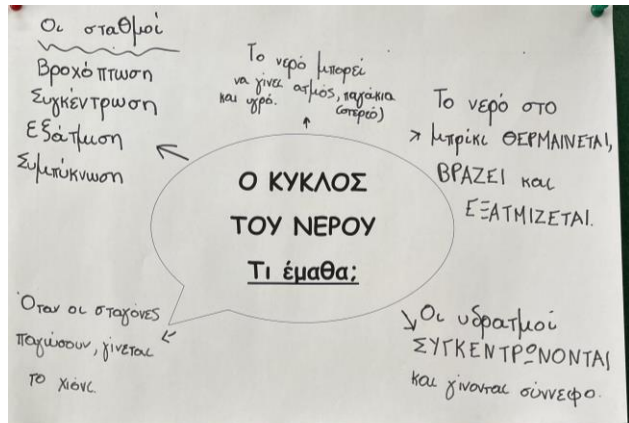 Οι σταθμοί
Βροχόπτωση
Συγκέντρωση
Εξάτμιση
Συμπύκνωση
Το νερό μπορεί
να γίνει ατμός, παγάκια
και υγρό. (στερεό)
Το νερό στο
μπρίκι ΘΕΡΜΑΙΝΕΤΑΙ,
ΒΡΑΖΕΙ και
ΕΞΑΤΜΙΖΕΤΑΙ.
Ο ΚΥΚΛΟΣ
ΤΟΥ ΝΕΡΟΥ
Τι έμαθα;
Όταν οι σταγόνες
παγώσουν, γίνεται
το χιόνι.
Οι υδρατμοί
ΣΥΓΚΕΝΤΡΩΝΟΝΤΑΙ
και γίνονται σύννεφο.